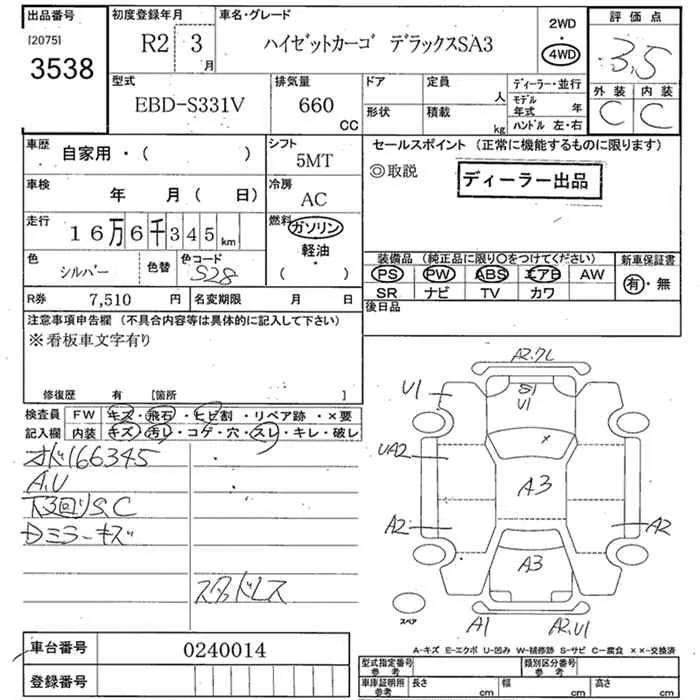 出品番号 初度登録年月 車名・グレード 2WD 評価点
[2075] R2 3月 ハイゼットカーゴ デラックスSA3 4WD 3.5
3538 外装 内装
型式 排気量 ドア 定員 人 ディーラー・並行
C C
EBD-S331V 660 CC 形状 積載 kg モデル年式 年
ハンドル 左・右
車歴 自家用・( ) シフト 5MT セールスポイント (正常に機能するものに限ります)
◎取説 ディーラー出品
車検 年 月 ( 日) 冷房 AC
走行 16万6千345km 燃料 ガソリン
軽油・
( )
色 シルバー 色替 色コード S28
装備品 (純正品に限り○をつけてください) 新車保証書
PS PW ABS エアB AW 有・無
SR ナビ TV カワ
R券 7,510円 名変期限 月 日 後日品
注意事項申告欄 (不具合内容等は具体的に記入して下さい)
※看板車文字有り
修復歴 有 [箇所 ]
検査員 FW キズ・飛石・ヒビ割・リペア跡・×要
記入欄 内装 キズ・汚レ・コゲ・穴・スレ・キレ・破レ
オド166345
A,U
下回りS,C
Dミラーキズ
スタッドレス
A2,ワレ
U1
S1
U1
UA2
A3
A2
A2
A3
スペア
A1
A2,U1
A-キズ E-エクボ U-凹み W-補修跡 S-サビ C-腐食 ××-交換済
車台番号 0240014
登録番号
型式指定番号 参考 類別区分番号 参考
車庫証明用 参考 長さ cm 幅 cm 高さ cm